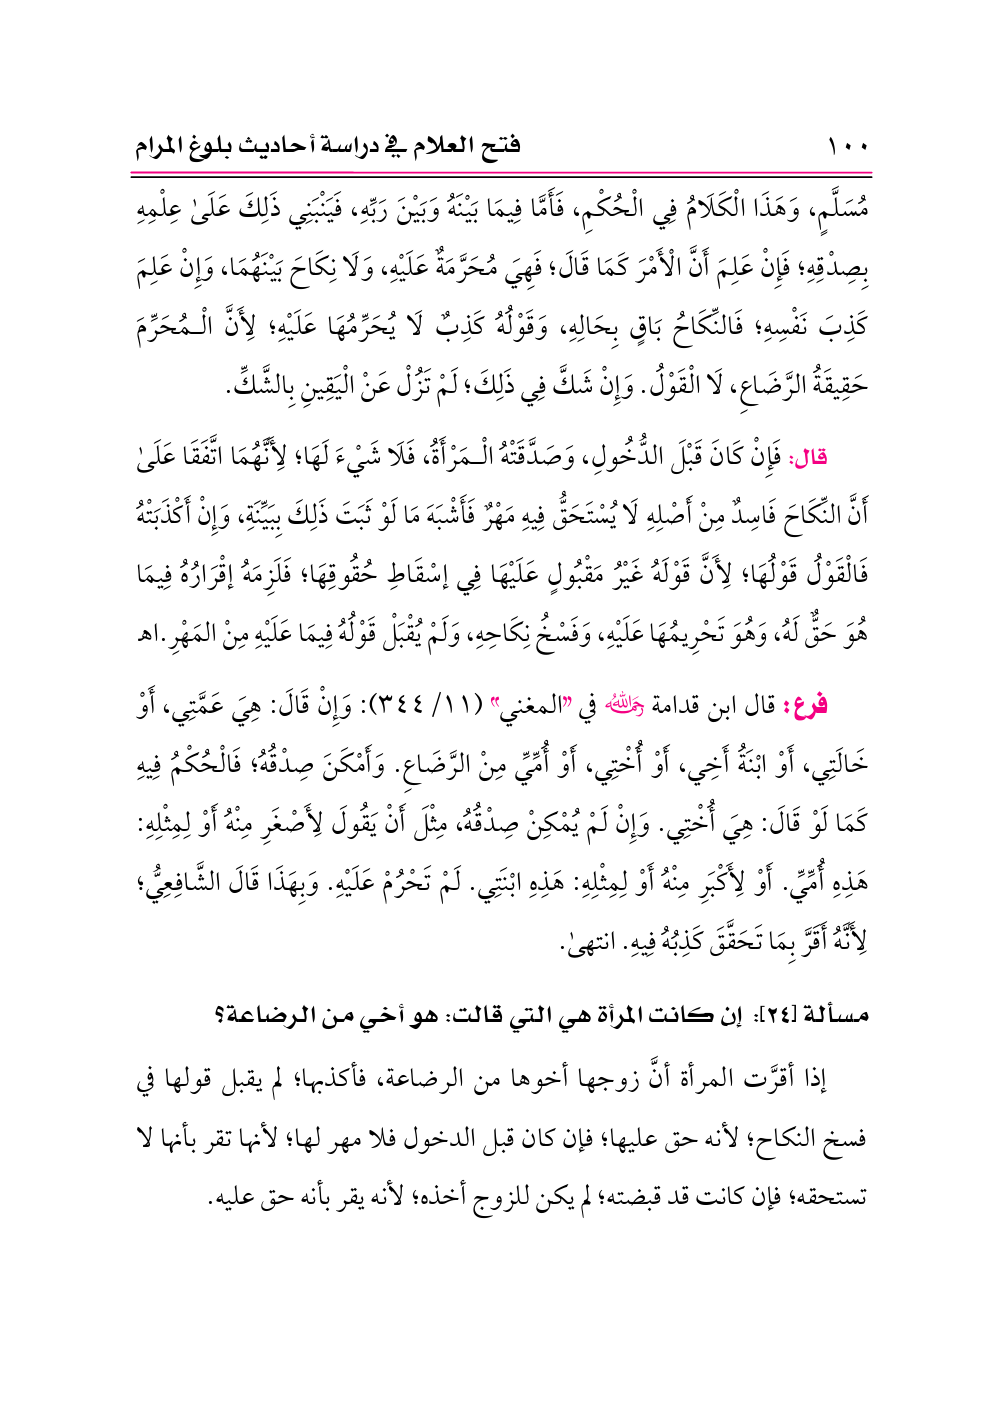 ١٠٠ فتح العلام في دراسة أحاديث بلوغ المرام
مُسَلَّمٍ، وَهَذَا الْكَلَامُ فِي الْحُكْمِ، فَأَمَّا فِيمَا بَيْنَهُ وَبَيْنَ رَبِّهِ، فَيَنْبَنِي ذَلِكَ عَلَىٰ عِلْمِهِ
بِصِدْقِهِ؛ فَإِنْ عَلِمَ أَنَّ الْأَمْرَ كَمَا قَالَ؛ فَهِيَ مُحَرَّمَةٌ عَلَيْهِ، وَلَا نِكَاحَ بَيْنَهُمَا، وَإِنْ عَلِمَ
كَذِبَ نَفْسِهِ؛ فَالنِّكَاحُ بَاقٍ بِحَالِهِ، وَقَوْلُهُ كَذِبٌ لَا يُحَرِّمُهَا عَلَيْهِ؛ لِأَنَّ الْـمُحَرِّمَ
حَقِيقَةُ الرَّضَاعِ، لَا الْقَوْلُ. وَإِنْ شَكَّ فِي ذَلِكَ؛ لَمْ تَزُلْ عَنْ الْيَقِينِ بِالشَّكِّ.
قال: فَإِنْ كَانَ قَبْلَ الدُّخُولِ، وَصَدَّقَتْهُ الْـمَرْأَةُ، فَلَا شَيْءَ لَهَا؛ لِأَنَّهُمَا اتَّفَقَا عَلَىٰ
أَنَّ النِّكَاحَ فَاسِدٌ مِنْ أَصْلِهِ لَا يُسْتَحَقُّ فِيهِ مَهْرٌ فَأَشْبَهَ مَا لَوْ ثَبَتَ ذَلِكَ بِبَيِّنَةِ، وَإِنْ أَكْذَبَتْهُ
فَالْقَوْلُ قَوْلُهَا؛ لِأَنَّ قَوْلَهُ غَيْرُ مَقْبُولٍ عَلَيْهَا فِي إسْقَاطِ حُقُوقِهَا؛ فَلَزِمَهُ إقْرَارُهُ فِيمَا
هُوَ حَقٌّ لَهُ، وَهُوَ تَحْرِيمُهَا عَلَيْهِ، وَفَسْخُ نِكَاحِهِ، وَلَمْ يُقْبَلْ قَوْلُهُ فِيمَا عَلَيْهِ مِنْ المَهْرِ.اهـ
فرع: قال ابن قدامة رحمه الله في "المغني" (١١/ ٣٤٤): وَإِنْ قَالَ: هِيَ عَمَّتِي، أَوْ
خَالَتِي، أَوْ ابْنَةُ أَخِي، أَوْ أُخْتِي، أَوْ أُمِّي مِنْ الرَّضَاعِ. وَأَمْكَنَ صِدْقُهُ؛ فَالْحُكْمُ فِيهِ
كَمَا لَوْ قَالَ: هِيَ أُخْتِي. وَإِنْ لَمْ يُمْكِنْ صِدْقُهُ، مِثْلَ أَنْ يَقُولَ لِأَصْغَرِ مِنْهُ أَوْ لِمِثْلِهِ:
هَذِهِ أُمِّي. أَوْ لِأَكْبَرِ مِنْهُ أَوْ لِمِثْلِهِ: هَذِهِ ابْنَتِي. لَمْ تَحْرُمْ عَلَيْهِ. وَبِهَذَا قَالَ الشَّافِعِيُّ؛
لِأَنَّهُ أَقَرَّ بِمَا تَحَقَّقَ كَذِبُهُ فِيهِ. انتهىٰ.
مسألة [٢٤]: إن كانت المرأة هي التي قالت: هو أخي من الرضاعة؟
إذا أقرَّت المرأة أنَّ زوجها أخوها من الرضاعة، فأكذبها؛ لم يقبل قولها في
فسخ النكاح؛ لأنه حق عليها؛ فإن كان قبل الدخول فلا مهر لها؛ لأنها تقر بأنها لا
تستحقه؛ فإن كانت قد قبضته؛ لم يكن للزوج أخذه؛ لأنه يقر بأنه حق عليه.